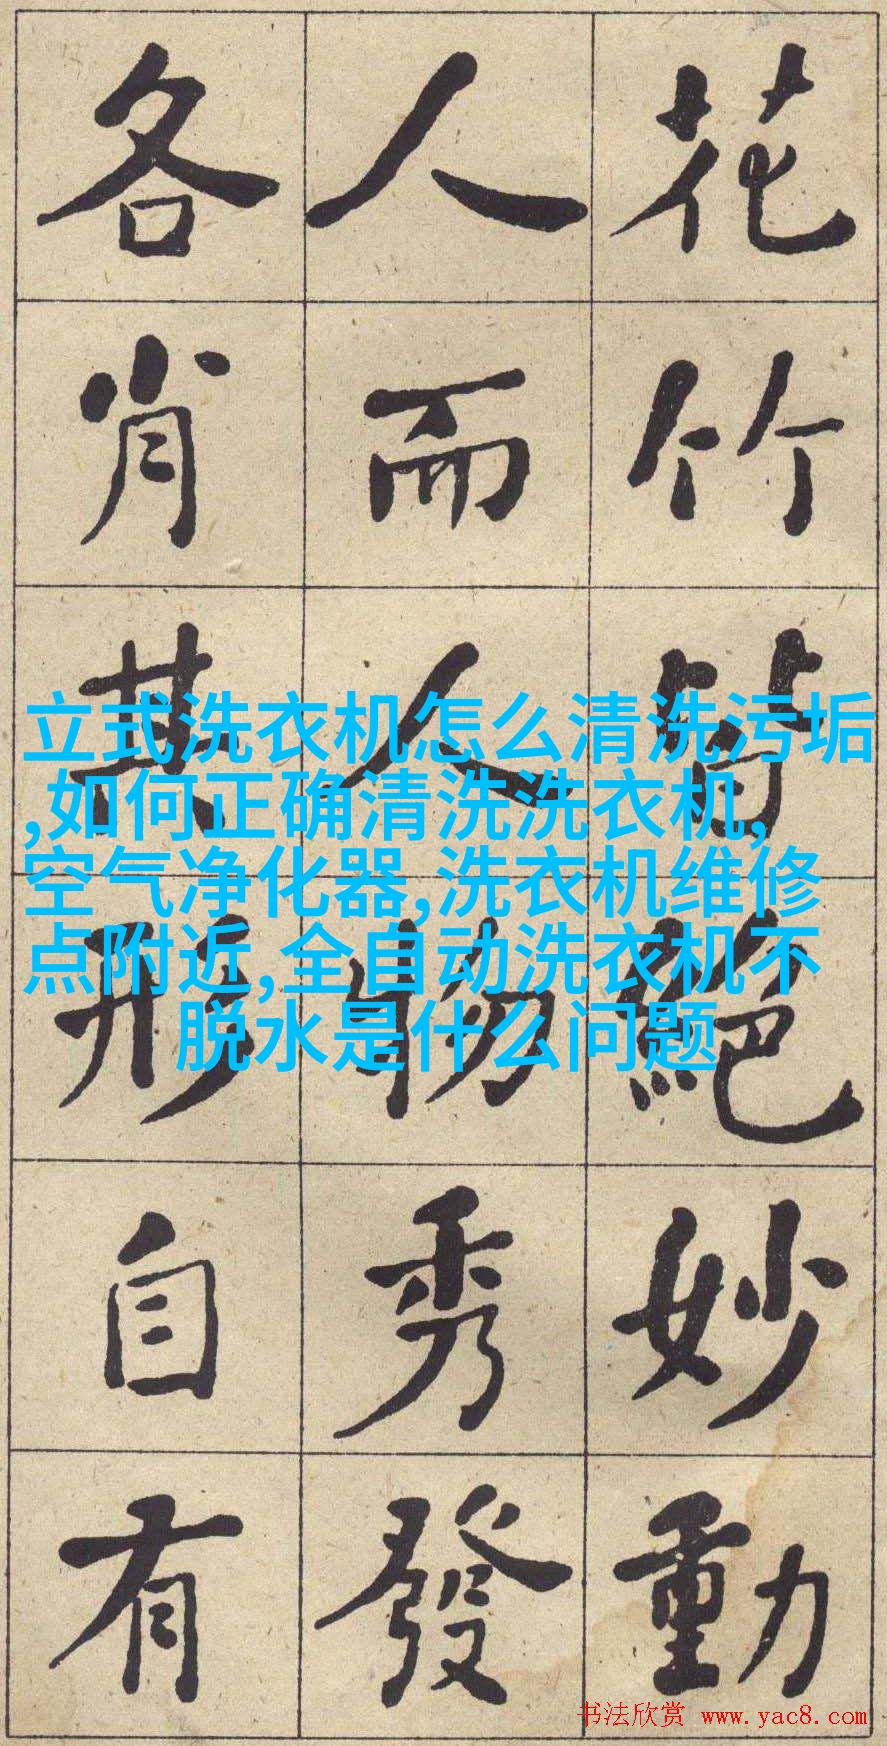 花竹皆絕妙動
人而人物秀發
各肖其形自有
立式洗衣机怎么清洗污垢
,如何正确清洗洗衣机,
空气净化器,洗衣机维修
点附近,全自动洗衣机不
脱水是什么问题
书法欣赏 www.yac8.com